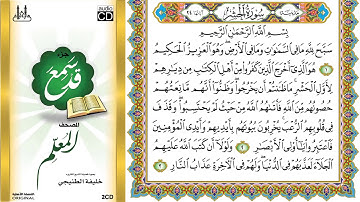 audio
CD
جزء
قد سمع
المصحف
المعلم
خليفة الطنيجي
ORIGINAL
2CD
سُورَةُ الحَشْرِ
بِسْمِ اللَّهِ الرَّحْمَٰنِ الرَّحِيمِ
سَبَّحَ لِلَّهِ مَا فِي السَّمَٰوَٰتِ وَمَا فِي الْأَرْضِ وَهُوَ الْعَزِيزُ الْحَكِيمُ
١ هُوَ الَّذِي أَخْرَجَ الَّذِينَ كَفَرُوا مِنْ أَهْلِ الْكِتَٰبِ مِن دِيَٰرِهِمْ
لِأَوَّلِ الْحَشْرِ مَا ظَنَنتُمْ أَن يَخْرُجُوا وَظَنُّوا أَنَّهُم مَّانِعَتُهُمْ
حُصُونُهُم مِّنَ اللَّهِ فَأَتَىٰهُمُ اللَّهُ مِنْ حَيْثُ لَمْ يَحْتَسِبُوا وَقَذَفَ
فِي قُلُوبِهِمُ الرُّعْبَ يُخْرِبُونَ بُيُوتَهُم بِأَيْدِيهِمْ وَأَيْدِي الْمُؤْمِنِينَ
فَاعْتَبِرُوا يَٰأُولِي الْأَبْصَٰرِ ٢ وَلَوْلَا أَن كَتَبَ اللَّهُ عَلَيْهِمُ
الْجَلَاءَ لَعَذَّبَهُمْ فِي الدُّنْيَا وَلَهُمْ فِي الْآخِرَةِ عَذَابُ النَّارِ ٣